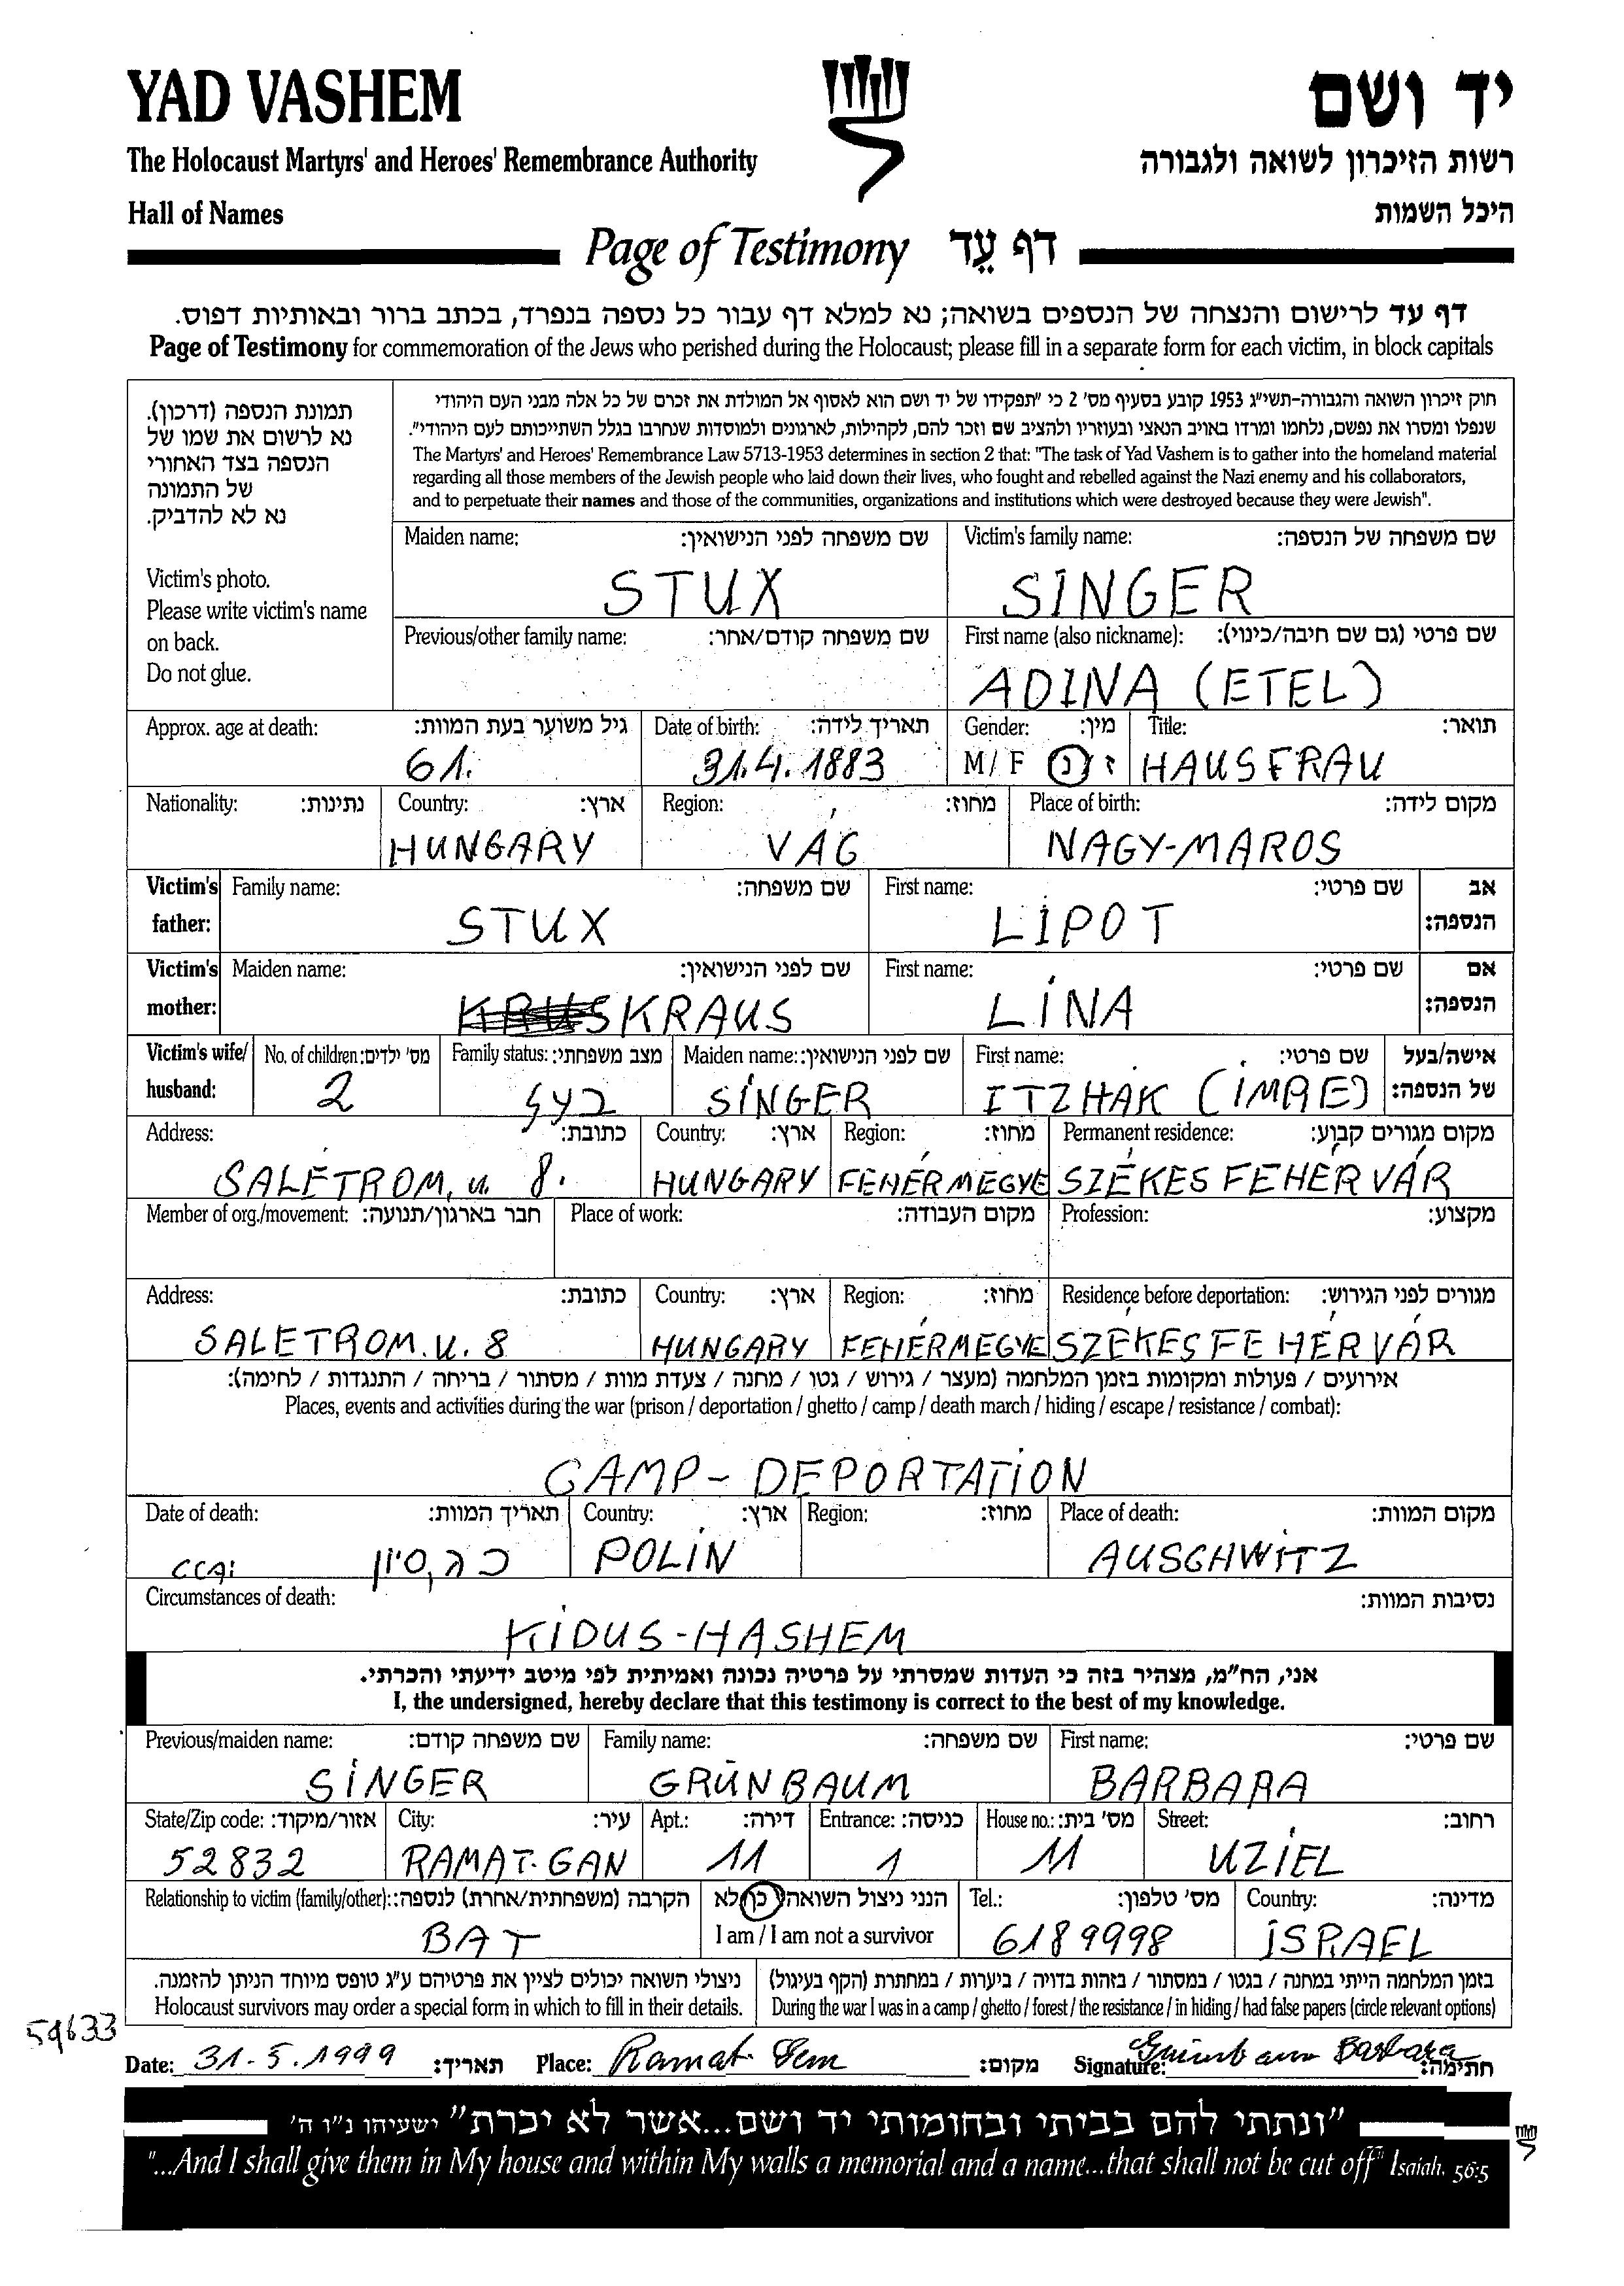 YAD VASHEM
יד ושם
The Holocaust Martyrs' and Heroes' Remembrance Authority
רשות הזיכרון לשואה ולגבורה
Hall of Names
היכל השמות
Page of Testimony דף עֵד
דף עד לרישום והנצחה של הנספים בשואה; נא למלא דף עבור כל נספה בנפרד, בכתב ברור ובאותיות דפוס.
Page of Testimony for commemoration of the Jews who perished during the Holocaust; please fill in a separate form for each victim, in block capitals
תמונת הנספה (דרכון).
נא לרשום את שמו של
הנספה בצד האחורי
של התמונה
נא לא להדביק.
Victim's photo.
Please write victim's name
on back.
Do not glue.
חוק זיכרון השואה והגבורה-תשי"ג 1953 קובע בסעיף מס' 2 כי "תפקידו של יד ושם הוא לאסוף אל המולדת את זכרם של כל אלה מבני העם היהודי
שנפלו ומסרו את נפשם, נלחמו ומרדו באויב הנאצי ובעוזריו ולהציב שם וזכר להם, לקהילות, לארגונים ולמוסדות שנחרבו בגלל השתייכותם לעם היהודי".
The Martyrs' and Heroes' Remembrance Law 5713-1953 determines in section 2 that: "The task of Yad Vashem is to gather into the homeland material
regarding all those members of the Jewish people who laid down their lives, who fought and rebelled against the Nazi enemy and his collaborators,
and to perpetuate their names and those of the communities, organizations and institutions which were destroyed because they were Jewish".
Maiden name: שם משפחה לפני הנישואין: Victim's family name: שם משפחה של הנספה:
STUX SINGER
Previous/other family name: שם משפחה קודם/אחר: First name (also nickname): שם פרטי (גם שם חיבה/כינוי):
ADINA (ETEL)
Approx. age at death: גיל משוער בעת המוות: Date of birth: תאריך לידה: Gender: מין: Title: תואר:
61. 31.4.1883 M/F ז נ HAUSFRAU
Nationality: נתינות: Country: ארץ: Region: מחוז: Place of birth: מקום לידה:
HUNGARY VÁG NAGY-MAROS
Victim's father: Family name: שם משפחה: First name: שם פרטי: אב הנספה:
STUX LIPOT
Victim's mother: Maiden name: שם לפני הנישואין: First name: שם פרטי: אם הנספה:
KRAUS LINA
Victim's wife/ husband: No. of children: מס' ילדים: Family status: מצב משפחתי: Maiden name: שם לפני הנישואין: First name: שם פרטי: אישה/בעל של הנספה:
2 SINGER ITZHAK (IMRE)
Address: כתובת: Country: ארץ: Region: מחוז: Permanent residence: מקום מגורים קבוע:
SALETROM. u. 8. HUNGARY FEHÉRMEGYE SZÉKESFEHÉRVÁR
Member of org./movement: חבר בארגון/תנועה: Place of work: מקום העבודה: Profession: מקצוע:
Address: כתובת: Country: ארץ: Region: מחוז: Residence before deportation: מגורים לפני הגירוש:
SALETROM. u. 8 HUNGARY FEHÉRMEGYE SZÉKESFEHÉRVÁR
אירועים / פעולות ומקומות בזמן המלחמה (מעצר / גירוש / גטו / מחנה / צעדת מוות / מסתור / בריחה / התנגדות / לחימה):
Places, events and activities during the war (prison / deportation / ghetto / camp / death march / hiding / escape / resistance / combat):
CAMP - DEPORTATION
Date of death: תאריך המוות: Country: ארץ: Region: מחוז: Place of death: מקום המוות:
כג, סיון POLIN AUSCHWITZ
Circumstances of death: נסיבות המוות:
KIDUS-HASHEM
אני, הח"מ, מצהיר בזה כי העדות שמסרתי על פרטיה נכונה ואמיתית לפי מיטב ידיעתי והכרתי.
I, the undersigned, hereby declare that this testimony is correct to the best of my knowledge.
Previous/maiden name: שם משפחה קודם: Family name: שם משפחה: First name: שם פרטי:
SINGER GRÜNBAUM BARBARA
State/Zip code: אזור/מיקוד: City: עיר: Apt.: דירה: Entrance: כניסה: House no.: מס' בית: Street: רחוב:
52832 RAMAT-GAN 11 1 11 UZIEL
Relationship to victim (family/other): הקרבה (משפחתית/אחרת) לנספה: הנני ניצול השואה כן לא Tel.: מס' טלפון: Country: מדינה:
BAT I am / I am not a survivor 6189998 ISRAEL
ניצולי השואה יכולים לציין את פרטיהם ע"ג טופס מיוחד הניתן להזמנה. בזמן המלחמה הייתי במחנה / בגטו / במסתור / בזהות בדויה / ביערות / במחתרת (הקף בעיגול)
Holocaust survivors may order a special form in which to fill in their details. During the war I was in a camp / ghetto / forest / the resistance / in hiding / had false papers (circle relevant options)
59633
Date: 31-5.1999 תאריך: Place: Ramat Gan מקום: Signature: Grünbaum Barbara חתימה:
"ונתתי להם בביתי ובחומותי יד ושם...אשר לא יכרת" ישעיהו נ"ו ה'
"...And I shall give them in My house and within My walls a memorial and a name...that shall not be cut off" Isaiah, 56:5